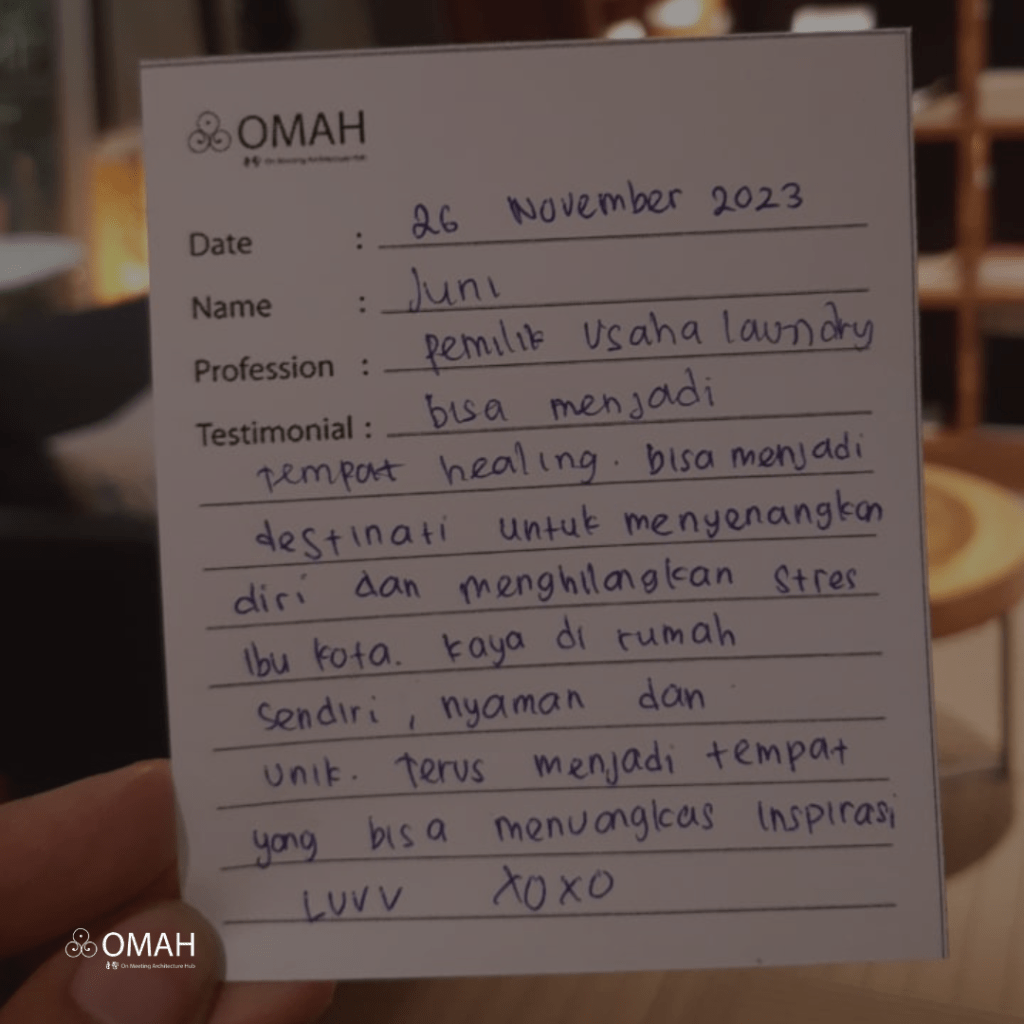 OMAH
On Meeting Architecture Hub
Date : 26 November 2023
Name : Juni
Profession : pemilik usaha laundry
Testimonial : bisa menjadi
tempat healing. bisa menjadi
destinati untuk menyenangkan
diri dan menghilangkan stres
ibu kota. kaya di rumah
sendiri, nyaman dan
unik. Terus menjadi tempat
yang bisa menuangkas inspirasi
LUVV XOXO
OMAH
On Meeting Architecture Hub